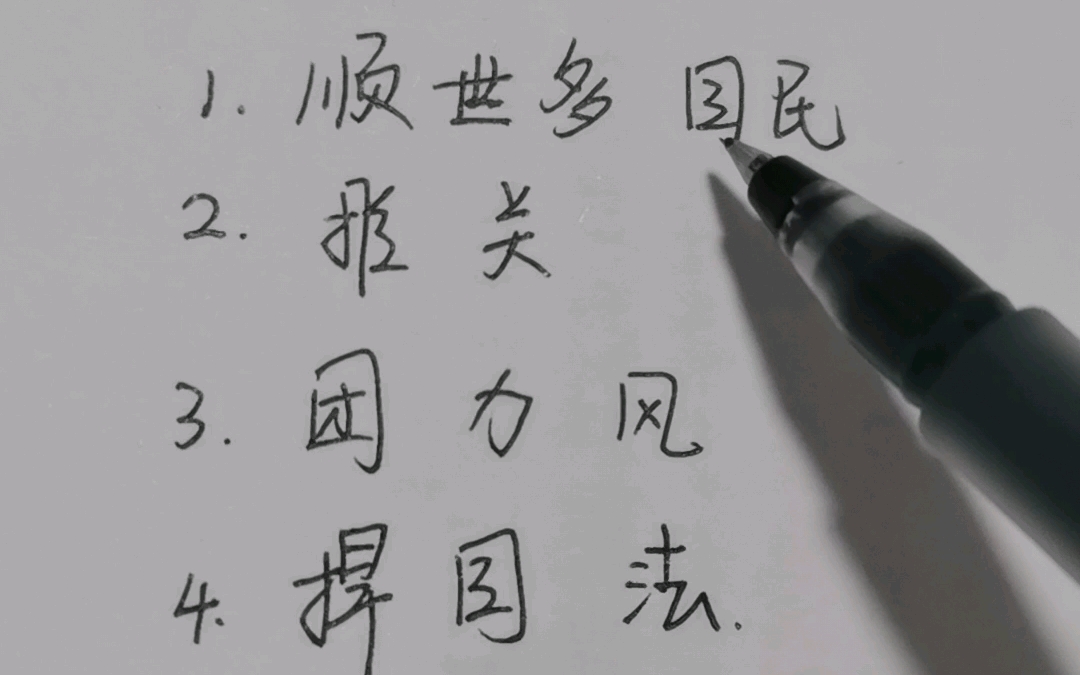 1. 顺世多 国民
2. 关
3. 团 力 风
4. 捍 国 法.